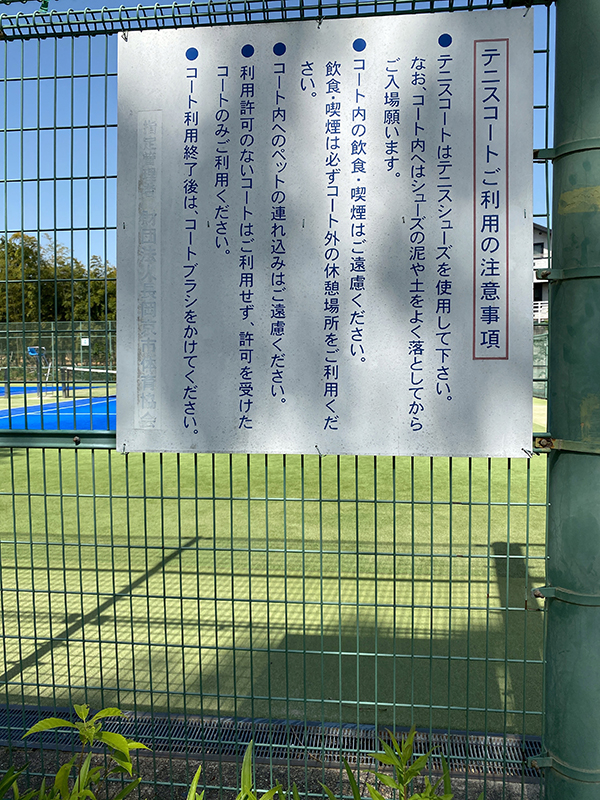 テニスコートご利用の注意事項
●テニスコートはテニスシューズを使用して下さい。
なお、コート内へはシューズの泥や土をよく落としてから
ご入場願います。
●コート内の飲食・喫煙はご遠慮ください。
飲食・喫煙は必ずコート外の休憩場所をご利用くだ
さい。
●コート内へのペットの連れ込みはご遠慮ください。
●利用許可のないコートはご利用せず、許可を受けた
コートのみご利用ください。
●コート利用終了後は、コートブラシをかけてください。